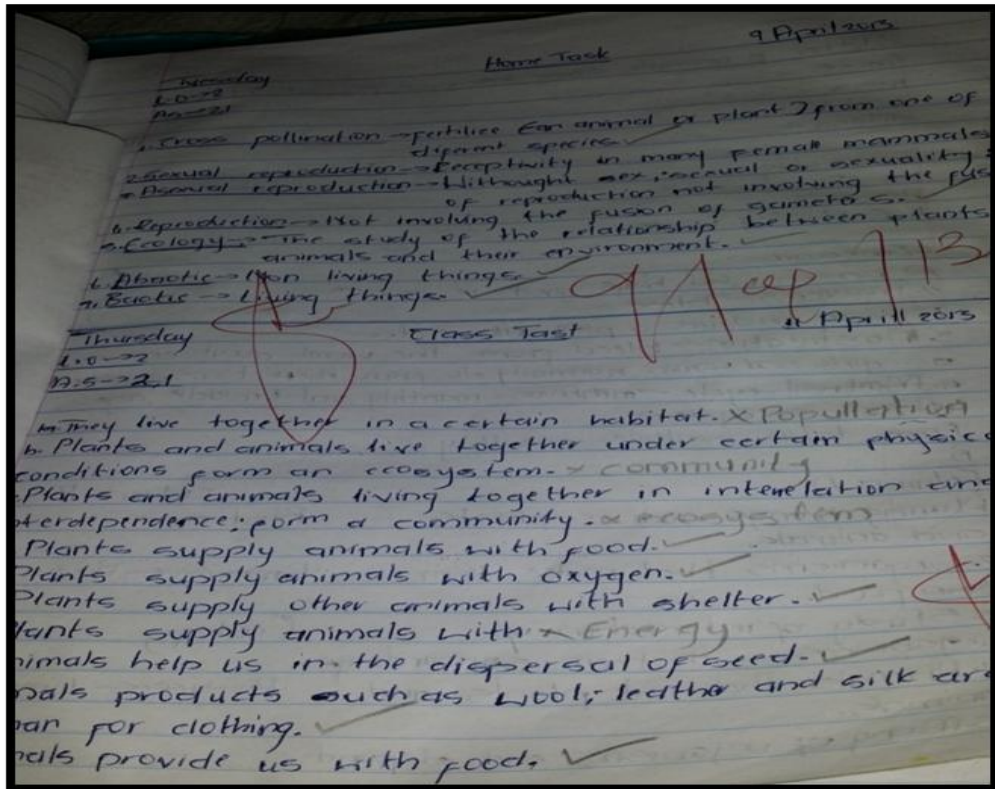 9 April 2013
Home Task
Tuesday
L.O→2
A.S→2.1
1. Cross pollination → fertilice (an animal or plant) from one of
diferent species
2. Sexual reproduction → Receptivity in many femal mammals
Asexual reproduction → Withought sex, sexual or sexuality:
of reproduction not involving the fus
4. Reproduction → Not involving the fusion of gametos.
5. Ecology → The study of the relationship between plants
animals and their environment.
6. Abaotic → Non living things.
7. Baotic → Living things.
Thursday Class Tast 11 Aprill 2013
L.O→2
A.S→2.1
They live together in a certain habitat. x Popullation
b. Plants and animals live together under certain physic
conditions form an ecosystem. x community
Plants and animals living together in interelation and
terdependence; form a community. x ecosystem
Plants supply animals with food.
Plants supply animals with oxygen.
Plants supply other animals with shelter.
lants supply animals with x Energy
nimals help us in the dispersal of seed.
mals products such as wool; leather and silk are
man for clothing.
mals provide us with food.